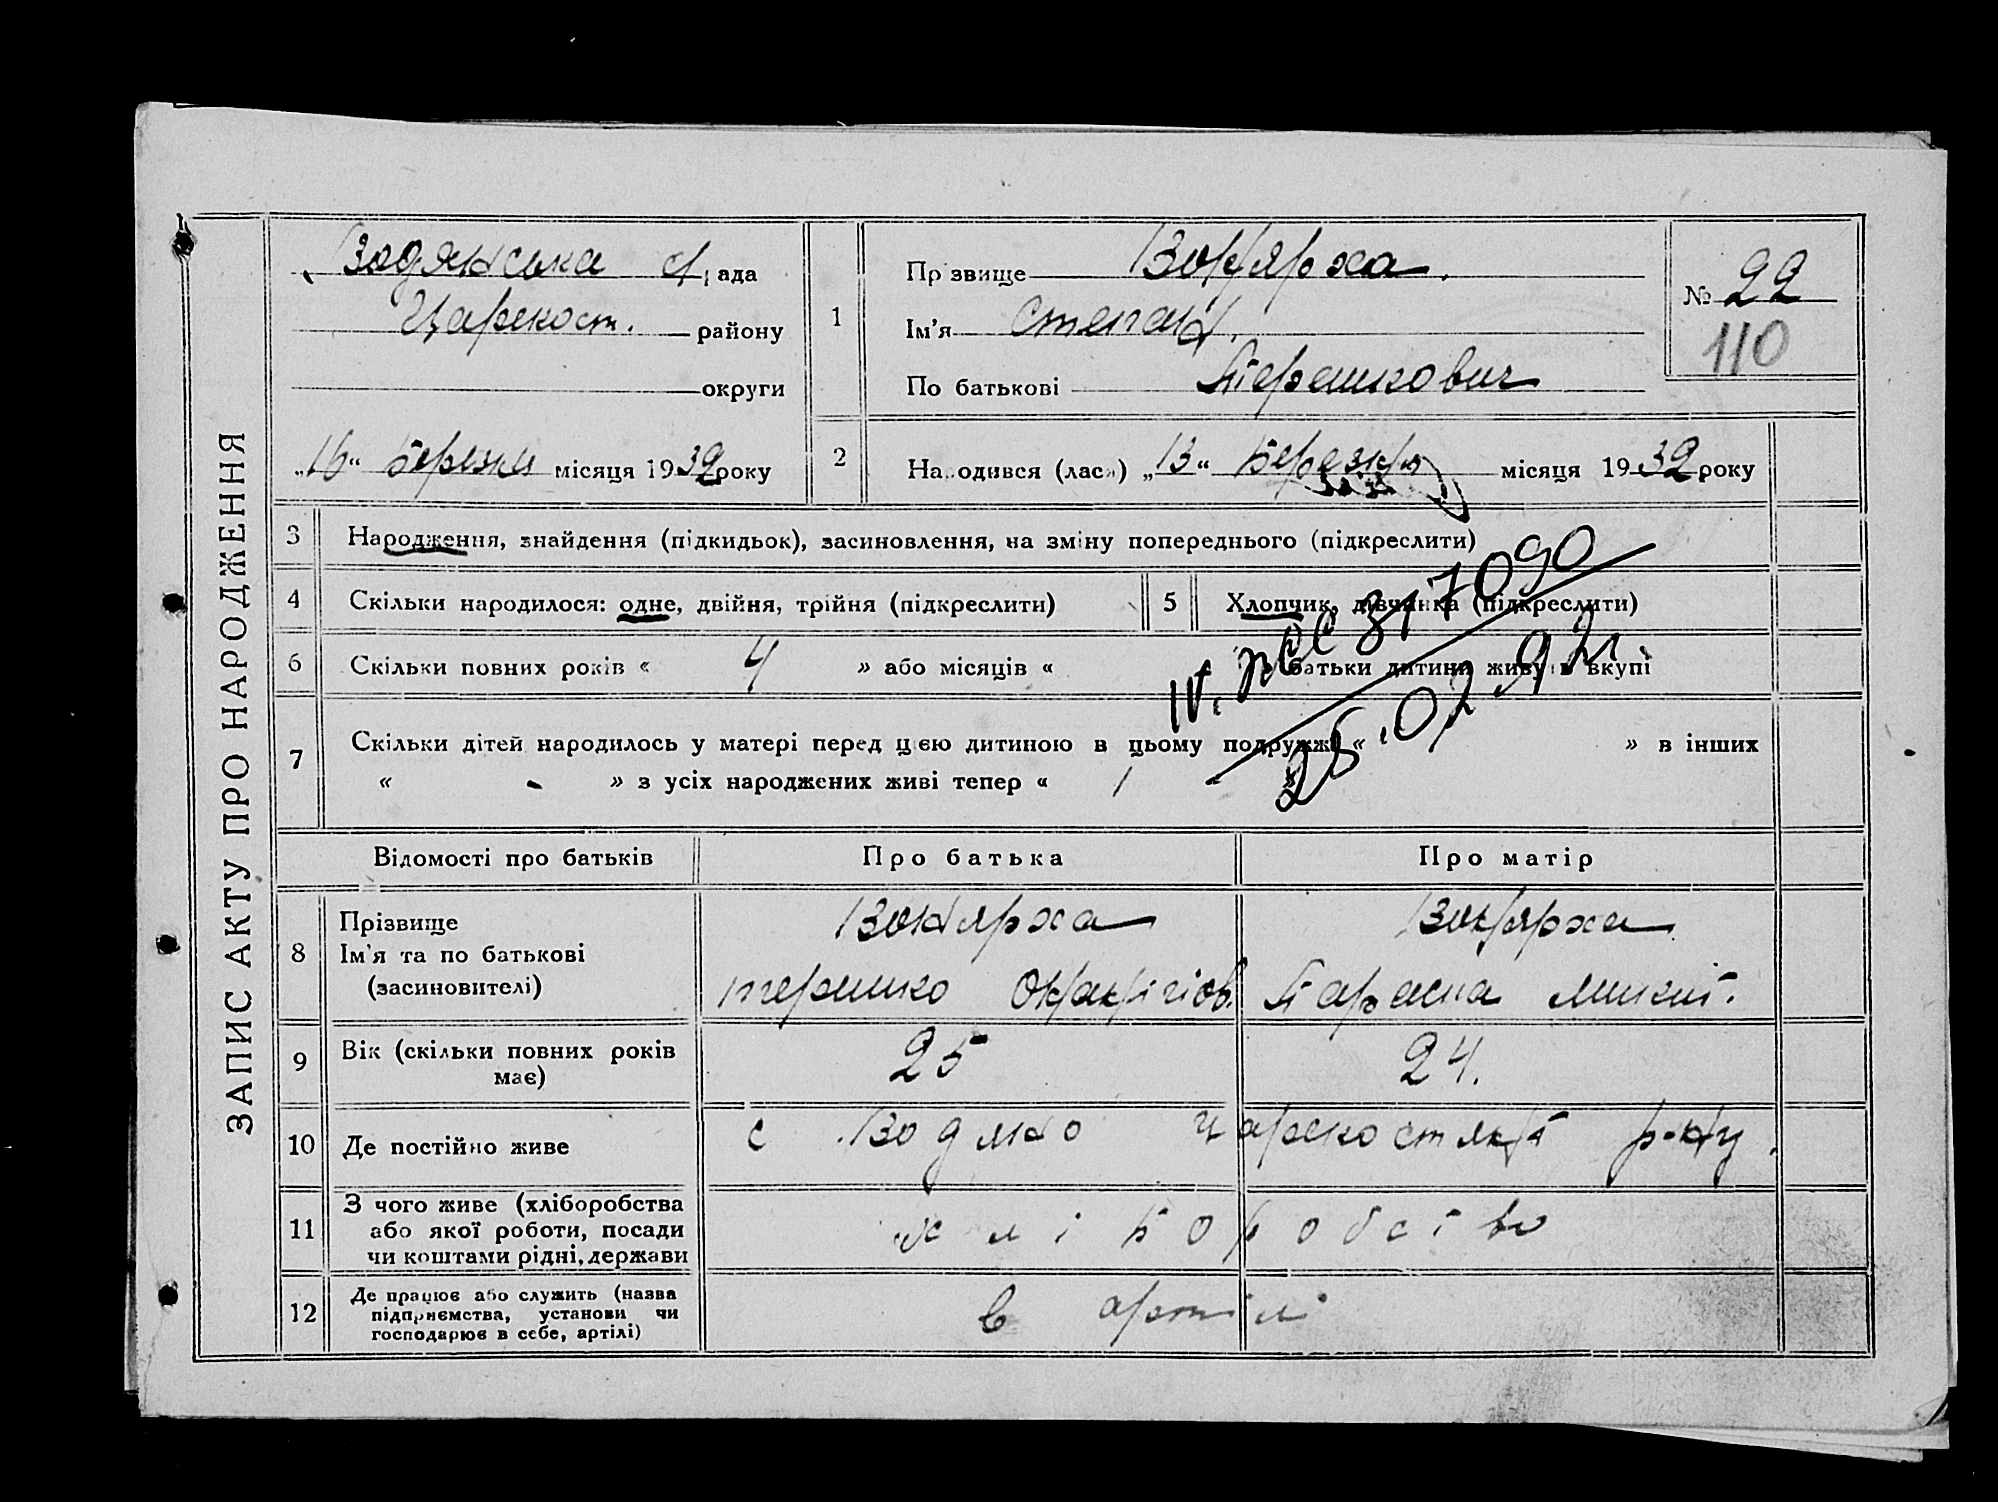 ЗАПИС АКТУ ПРО НАРОДЖЕННЯ
Водянська с/рада
Царекост. району
округи
„16“ Березня місяця 1932 року
1
Прізвище Вокнярха.
Ім'я Степан.
По батькові Терешкович
№ 22
110
2
Народився (лась) „13“ Березня місяця 1932 року
3 Народження, знайдення (підкидьок), засиновлення, на зміну попереднього (підкреслити)
4 Скільки народилося: одне, двійня, трійня (підкреслити)
5 Хлопчик, дівчинка (підкреслити)
6 Скільки повних років « 4 » або місяців « батьки дитини живуть вкупі
7 Скільки дітей народилось у матері перед цією дитиною в цьому подружжі « » в інших
« - » з усіх народжених живі тепер « 1
317090
25.02.92
Відомості про батьків Про батька Про матір
8 Прізвище
Ім'я та по батькові
(засиновителі)
терешко
Параска микит.
9 Вік (скільки повних років має) 25 24.
10 Де постійно живе с Водяно Царекостянт р-ну.
11 З чого живе (хліборобства або якої роботи, посади чи коштами рідні, держави хліборобство
12 Де працює або служить (назва підприємства, установи чи господарює в себе, артілі) в артілі